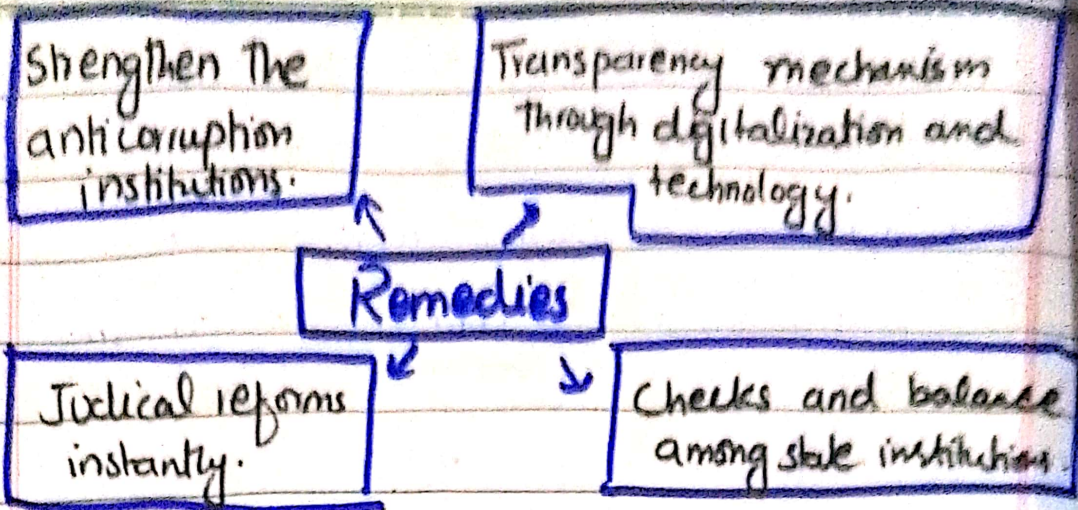 Strengthen the
anticorruption
institutions.
Transparency mechanism
through digitalization and
technology.
Remedies
Judical reforms
instantly.
Checks and balance
among state institutions